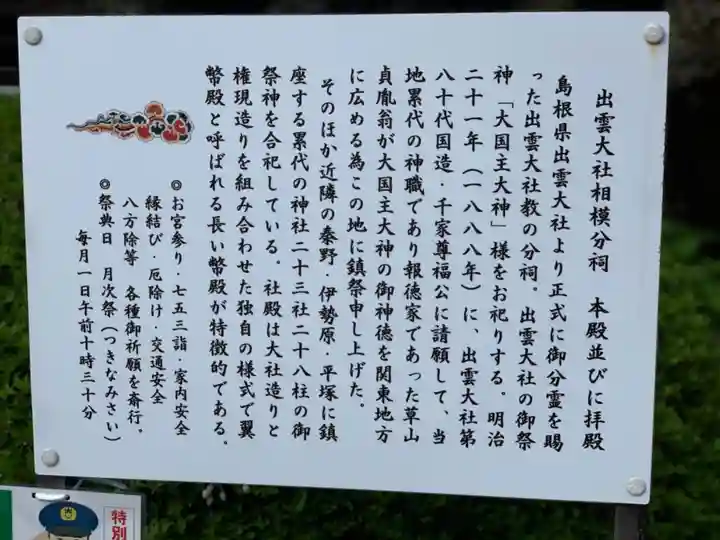 出雲大社相模分祠　本殿並びに拝殿
島根県出雲大社より正式に御分霊を賜
った出雲大社教の分祠。出雲大社の御祭
神「大国主大神」様をお祀りする。明治
二十一年（一八八八年）に、出雲大社第
八十代国造・千家尊福公に請願して、当
地累代の神職であり報徳家であった草山
貞胤翁が大国主大神の御神徳を関東地方
に広める為この地に鎮祭申し上げた。
そのほか近隣の秦野・伊勢原・平塚に鎮
座する累代の神社二十三社二十八柱の御
祭神を合祀している。社殿は大社造りと
権現造りを組み合わせた独自の様式で翼
幣殿と呼ばれる長い幣殿が特徴的である。
◎お宮参り・七五三詣・家内安全
縁結び・厄除け・交通安全
八方除等　各種御祈願を斎行。
◎祭典日　月次祭（つきなみさい）
毎月一日午前十時三十分
特別